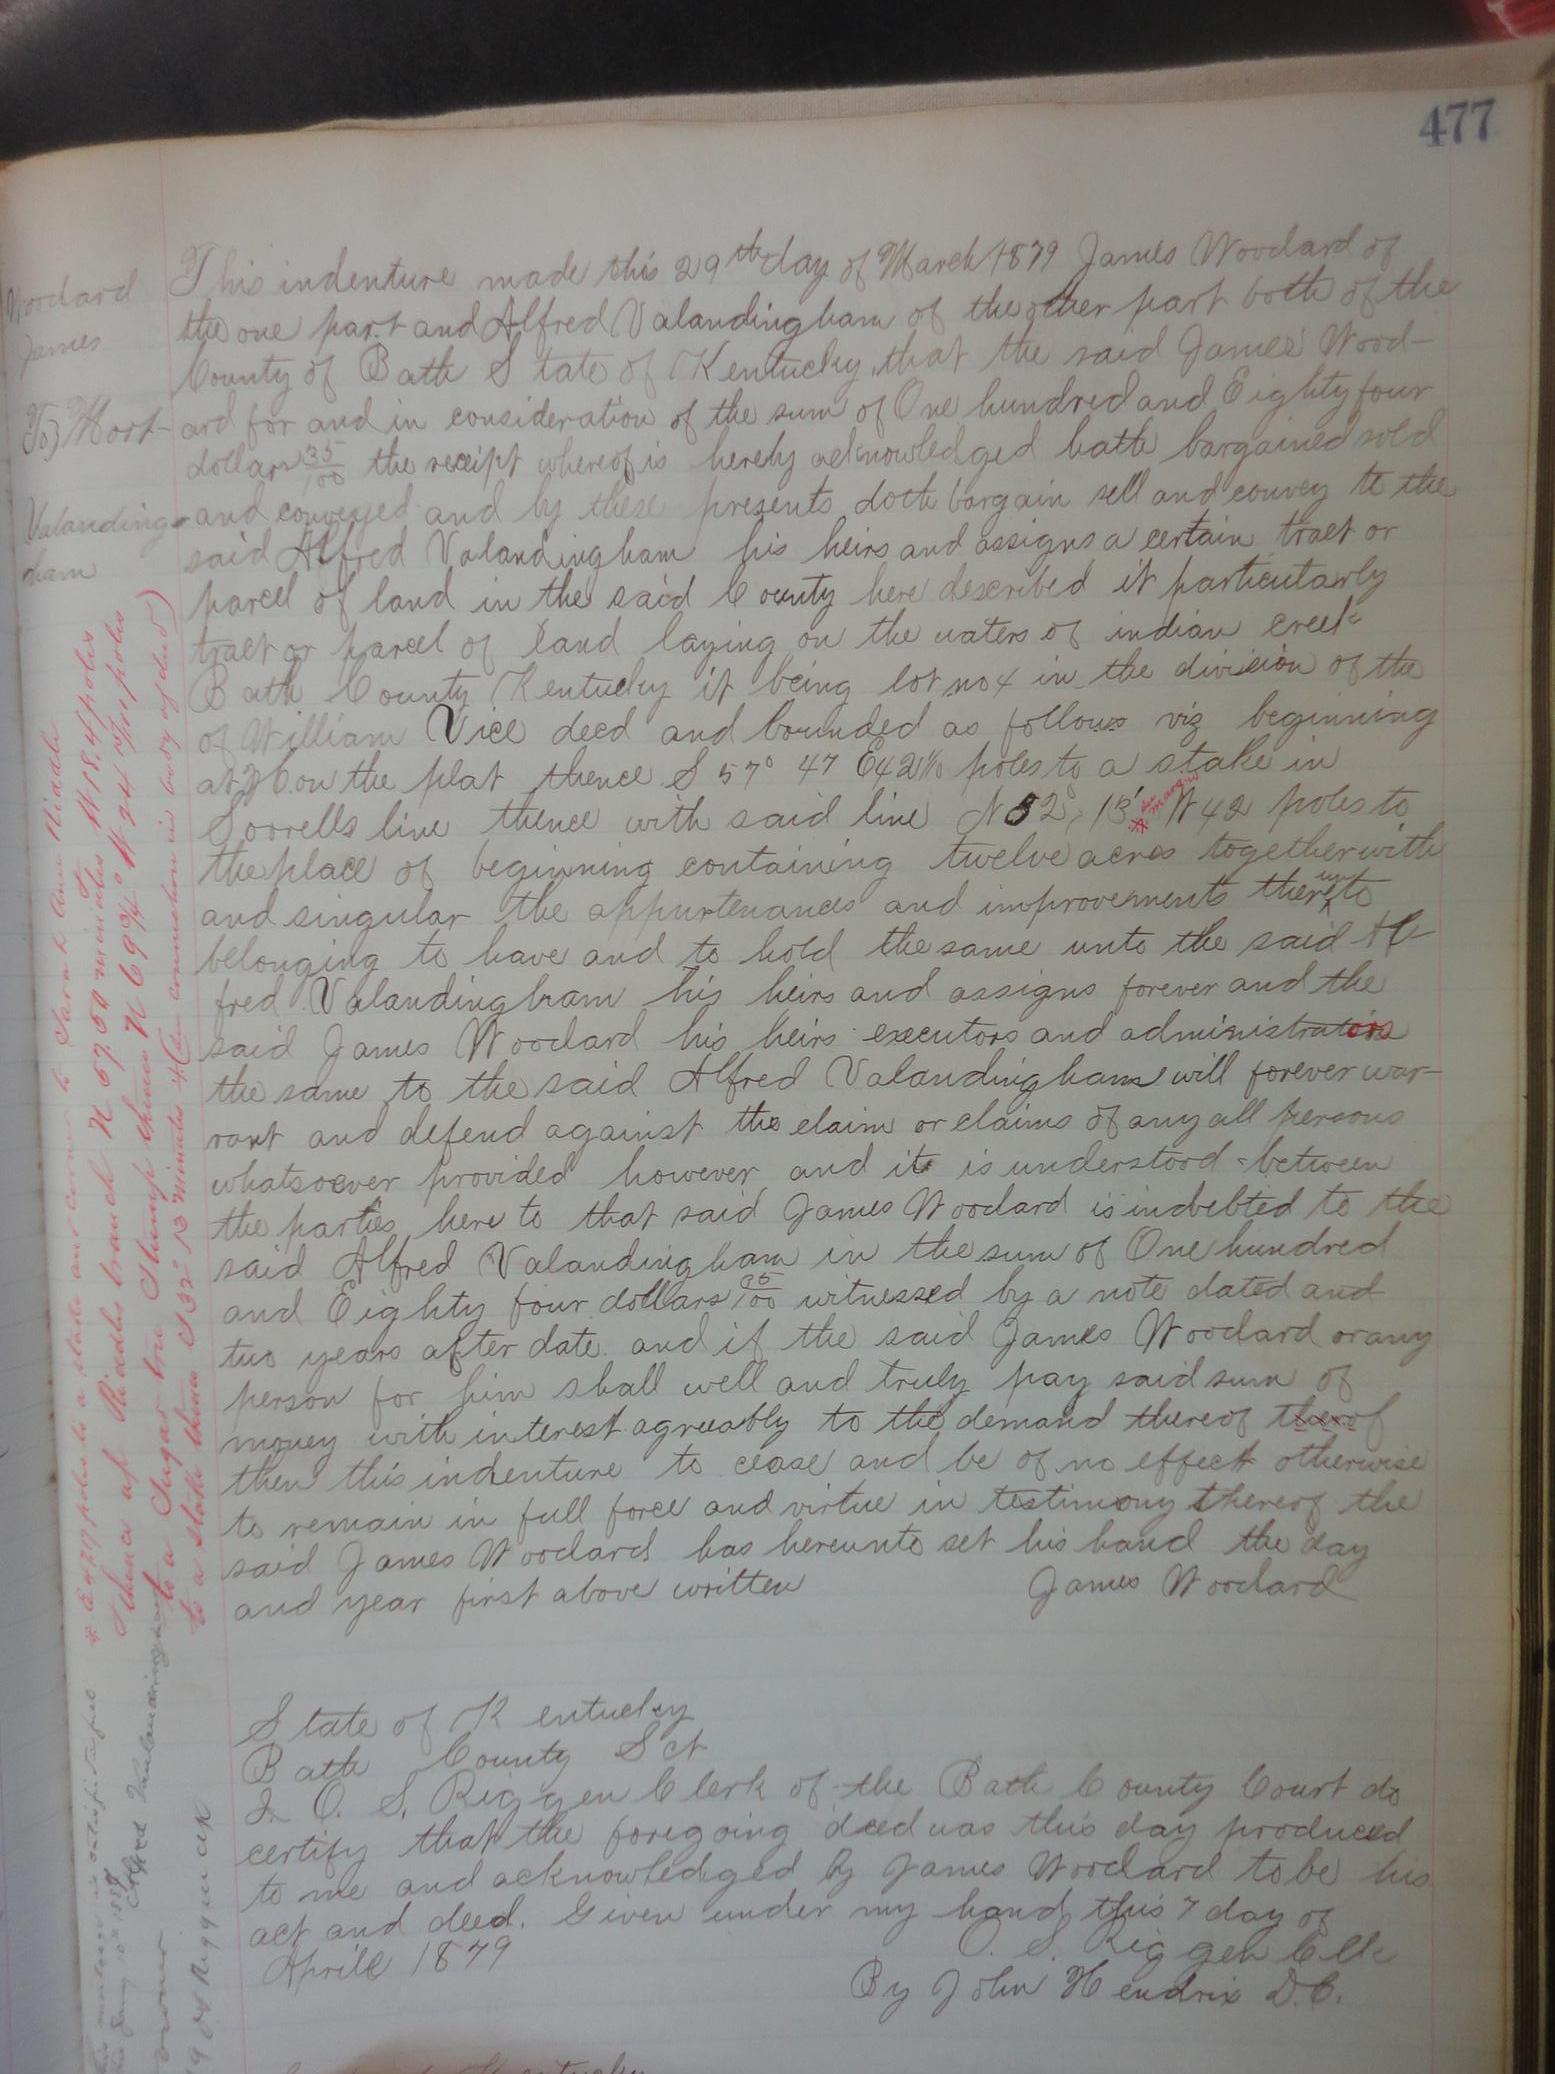 477
Woodard
James
To } Mort
Valanding-
ham
This indenture made this 29th day of March 1879 James Woodard of
the one part and Alfred Valandingham of the other part both of the
County of Bath State of Kentucky, that the said James Wood-
ard for and in consideration of the sum of One hundred and Eighty four
dollars 35/100 the receipt whereof is hereby acknowledged hath bargained sold
and conveyed and by these presents doth bargain sell and convey to the
said Alfred Valandingham his heirs and assigns a certain tract or
parcel of land in the said County here described it particularly
tract or parcel of land laying on the waters of indian creek
Bath County Kentucky it being lot no 4 in the division of the
of William Vice deed and bounded as follows viz beginning
at on the plat thence S 57° 47 E 42 poles to a stake in
Sorrells line thence with said line N 52, 13' W 42 poles to
the place of beginning containing twelve acres together with
and singular the appurtenances and improvements thereunto
belonging to have and to hold the same unto the said Al-
fred Valandingham his heirs and assigns forever and the
said James Woodard his heirs executors and administrators
the same to the said Alfred Valandingham will forever war-
rant and defend against the claim or claims of any all persons
whatsoever provided however and it is understood between
the parties here to that said James Woodard is indebted to the
said Alfred Valandingham in the sum of One hundred
and Eighty four dollars 35/100 witnessed by a note dated and
two years after date and if the said James Woodard or any
person for him shall well and truly pay said sum of
money with interest agreeably to the demand thereof therof
then this indenture to cease and be of no effect otherwise
to remain in full force and virtue in testimony thereof the
said James Woodard has hereunto set his hand the day
and year first above written James Woodard
State of Kentucky
Bath County Sct
I O. S. Riggen Clerk of the Bath County Court do
certify that the foregoing deed was this day produced
to me and acknowledged by James Woodard to be his
act and deed. Given under my hand this 7 day of
Aprile 1879 O. S. Riggen Clk
By John Hendrix D.C.
poles to a stake and corner to Sarah Ann Riddle
thence up Riddles branch N 57.50 minutes W 18.4 poles
to a Sugar tree Stump thence N 69 3/4° W 24 poles
to a stake thence S 32° 13 minutes